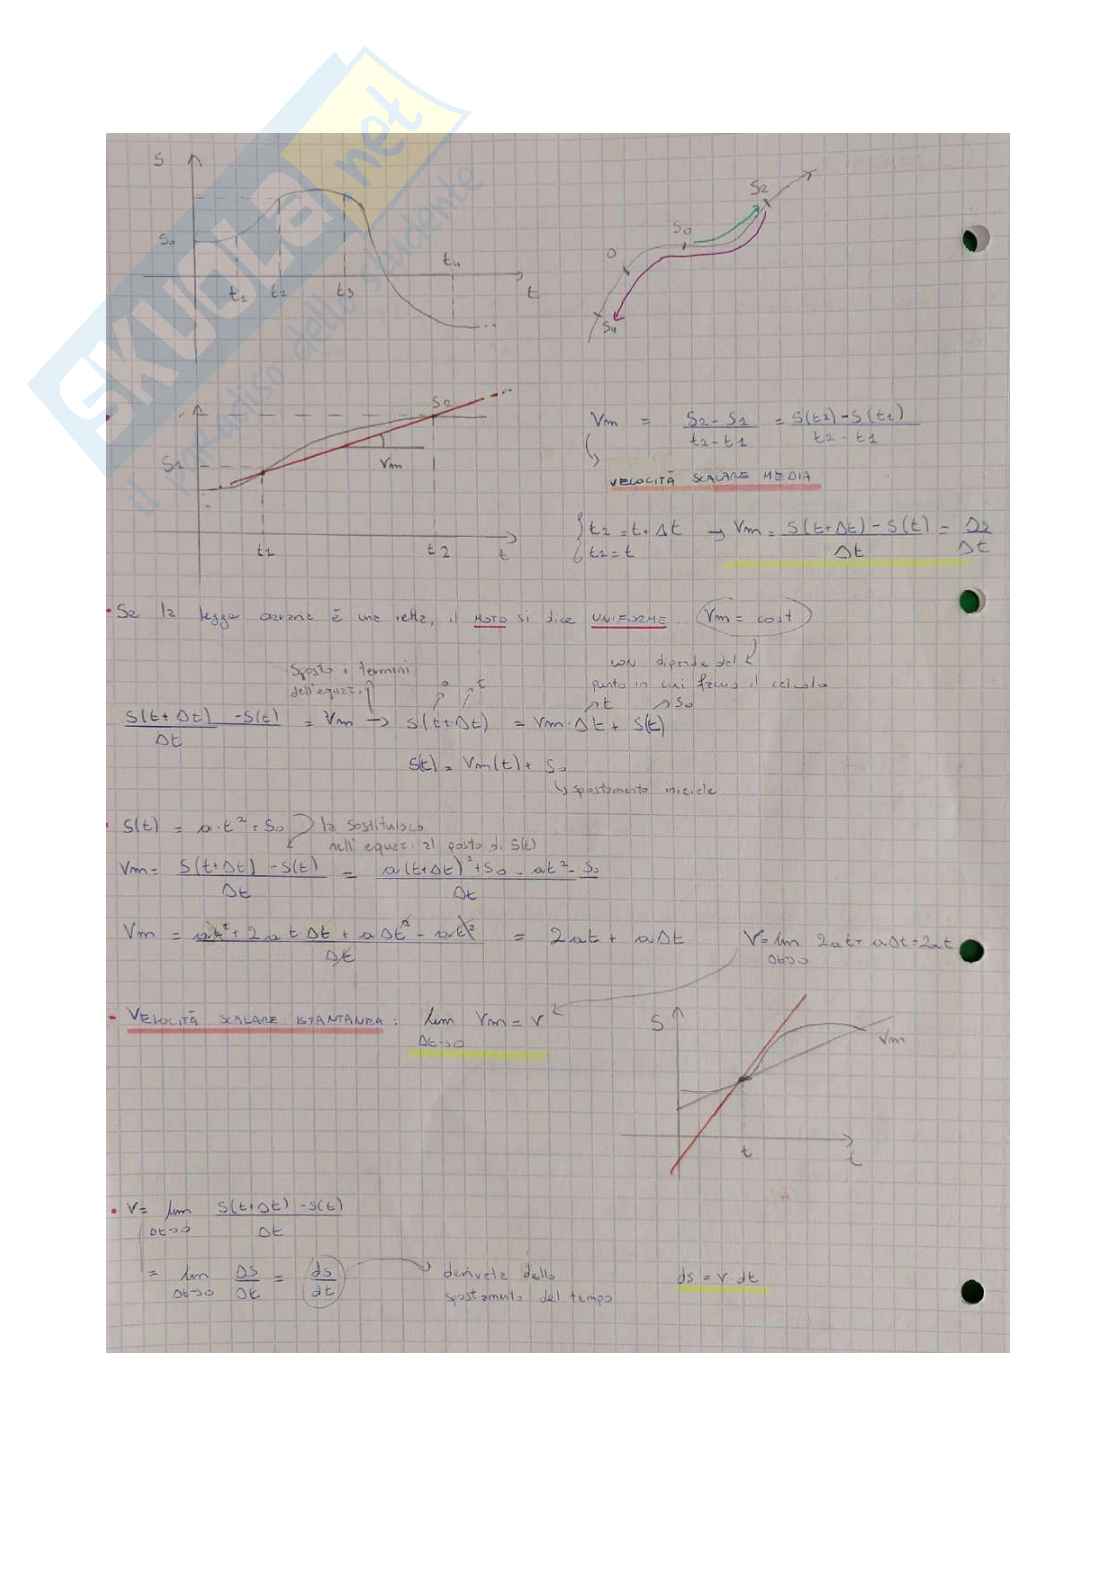 SKUOLA.net
il paradiso dello studente
S
S₀
t₁ t₂ t₃ t₄ t
S₂
S₀
O
S₄
S₂
S₁
Vm
t₁ t₂ t
Vm = S₂ - S₁ / t₂ - t₁ = S(t₂) - S(t₁) / t₂ - t₁
VELOCITÀ SCALARE MEDIA
{ t₂ = t + Δt → Vm = S(t+Δt) - S(t) / Δt = Δs / Δt
t₁ = t
• Se la legge oraria è una retta, il MOTO si dice UNIFORME Vm = cost
non dipende dal
punto in cui faccio il calcolo
Sposto i termini
dell'equaz.
o t t S₀
S(t+Δt) - S(t) / Δt = Vm → S(t+Δt) = Vm·Δt + S(t)
S(t) = Vm(t) + S₀
↳ spostamento iniziale
• S(t) = a·t² + S₀ la sostituisco
nell'equaz. al posto di S(t)
Vm = S(t+Δt) - S(t) / Δt = a(t+Δt)² + S₀ - at² - S₀ / Δt
Vm = at² + 2atΔt + aΔt² - at² / Δt = 2at + aΔt V = lim 2at + aΔt = 2at
Δt→0
• VELOCITÀ SCALARE ISTANTANEA: lim Vm = V
Δt→0
S
Vm
t t
• V = lim S(t+Δt) - S(t) / Δt
Δt→0
= lim ΔS / Δt = ds / dt → derivata dello
Δt→0 spostamento del tempo
ds = v dt